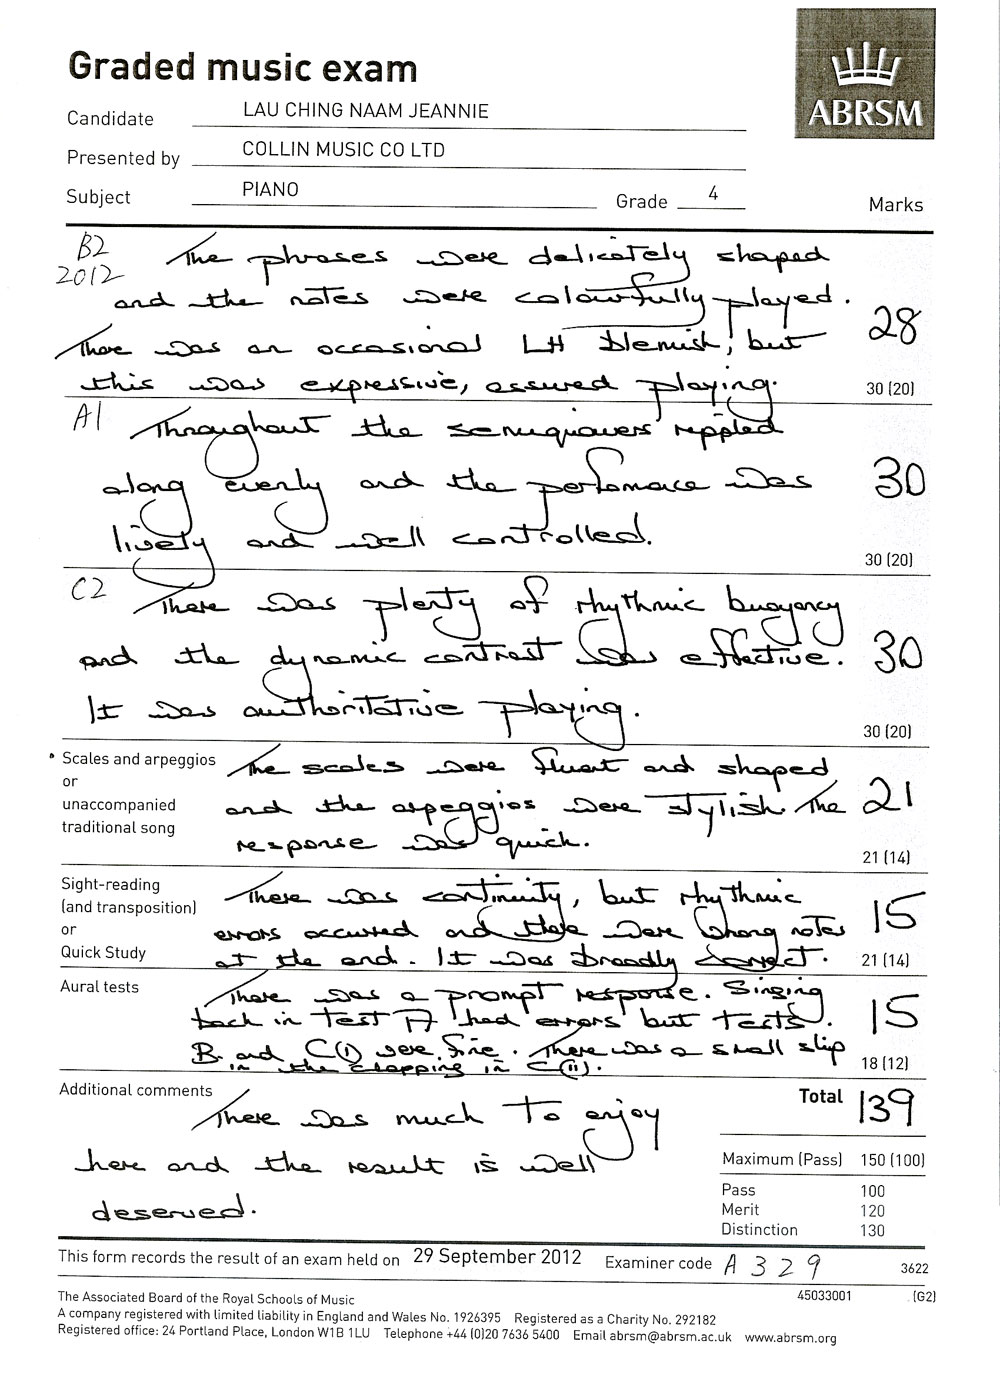 Graded music exam
ABRSM
Candidate LAU CHING NAAM JEANNIE
Presented by COLLIN MUSIC CO LTD
Subject PIANO Grade 4 Marks
B2 The phrases were delicately shaped
2012 and the notes were colourfully played.
There was an occasional LH blemish, but 28
this was expressive, assured playing. 30 (20)
A1 Throughout the semiquavers rippled
along evenly and the performance was 30
lively and well controlled.
30 (20)
C2 There was plenty of rhythmic buoyancy
and the dynamic contrast was effective. 30
It was authoritative playing.
30 (20)
Scales and arpeggios The scales were fluent and shaped
or
unaccompanied and the arpeggios were stylish. The 21
traditional song response was quick.
21 (14)
Sight-reading There was continuity, but rhythmic
(and transposition) 15
or errors occurred and there were wrong notes
Quick Study at the end. It was broadly correct. 21 (14)
Aural tests There was a prompt response. Singing
back in Test A had errors but tests 15
B and C(i) were fine. There was a small slip
in the clapping in C(ii). 18 (12)
Additional comments Total 139
There was much to enjoy
here and the result is well Maximum (Pass) 150 (100)
deserved. Pass 100
Merit 120
Distinction 130
This form records the result of an exam held on 29 September 2012 Examiner code A 329 3622
45033001 (G2)
The Associated Board of the Royal Schools of Music
A company registered with limited liability in England and Wales No. 1926395 Registered as a Charity No. 292182
Registered office: 24 Portland Place, London W1B 1LU Telephone +44 (0)20 7636 5400 Email abrsm@abrsm.ac.uk www.abrsm.org